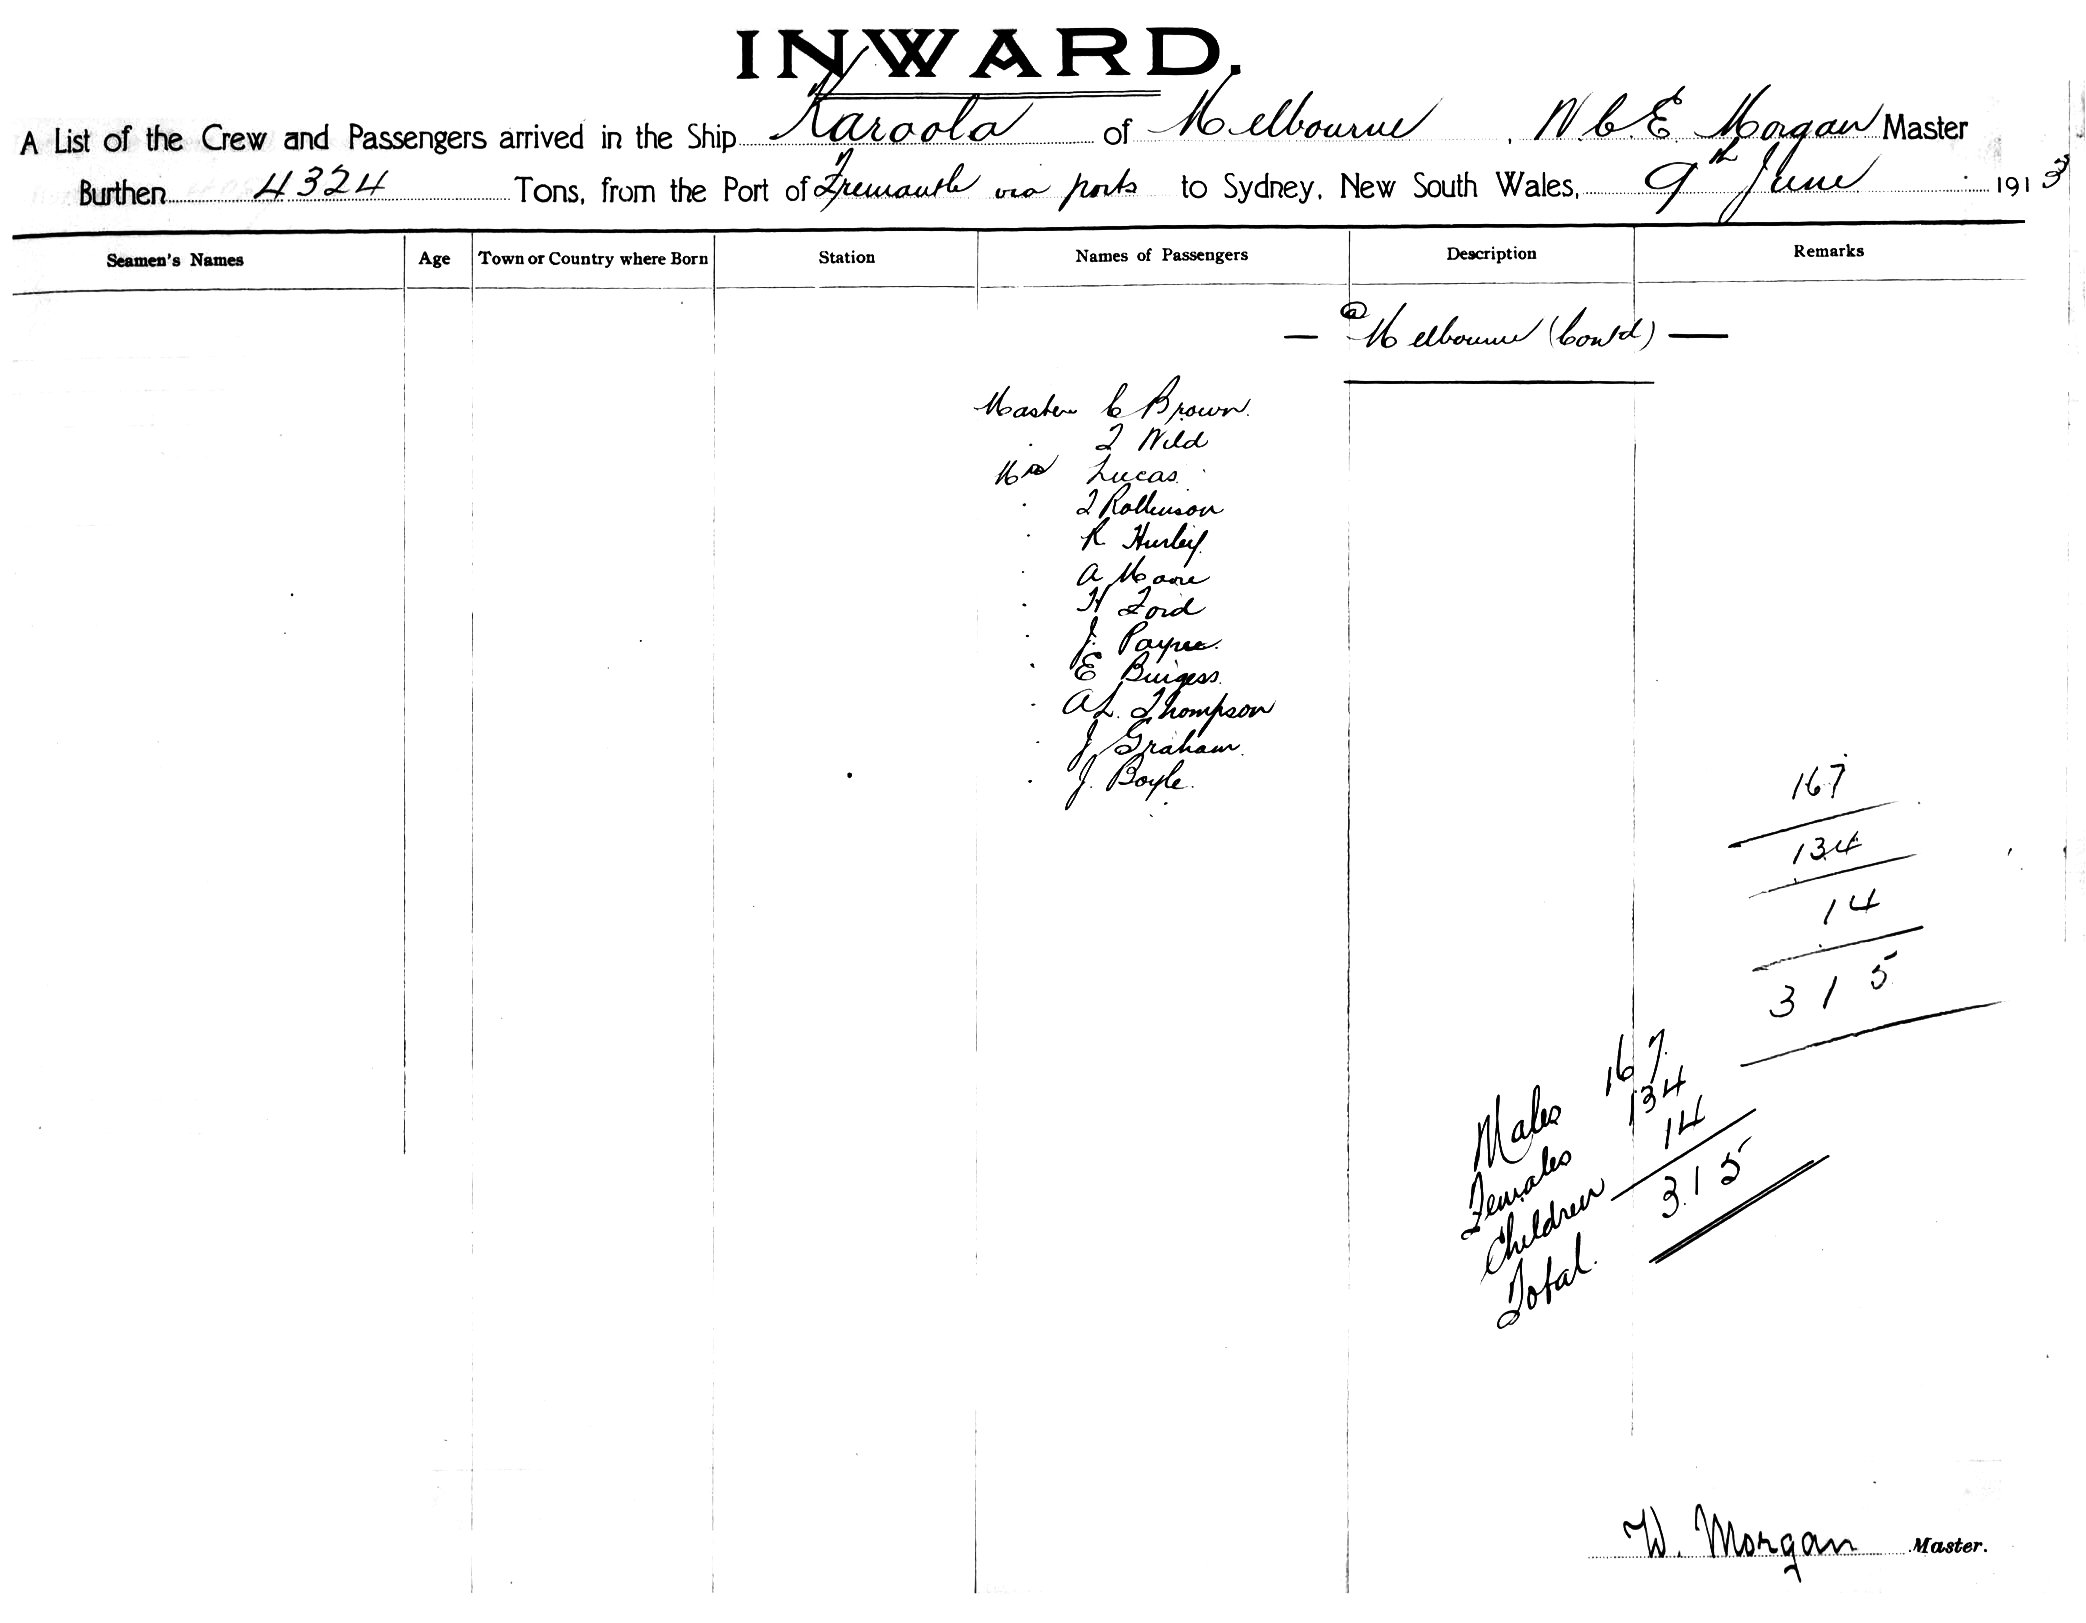 INWARD.
A List of the Crew and Passengers arrived in the Ship Karoola of Melbourne, W C. E Morgan Master
Burthen 4324 Tons, from the Port of Fremantle via ports to Sydney, New South Wales, 9th June 1913
Seamen's Names Age Town or Country where Born Station Names of Passengers Description Remarks
— @ Melbourne (Contd) —
Master C Brown.
. F Wild
Lucas.
. F Rollinson
. R Hurley
. A Moore
. H Ford
. J. Payne.
. E Burgess.
. A L. Thompson
. J Graham.
. J. Boyle.
167
134
14
315
Males 167
Females 134
Children 14
Total. 315
W. Morgan Master.